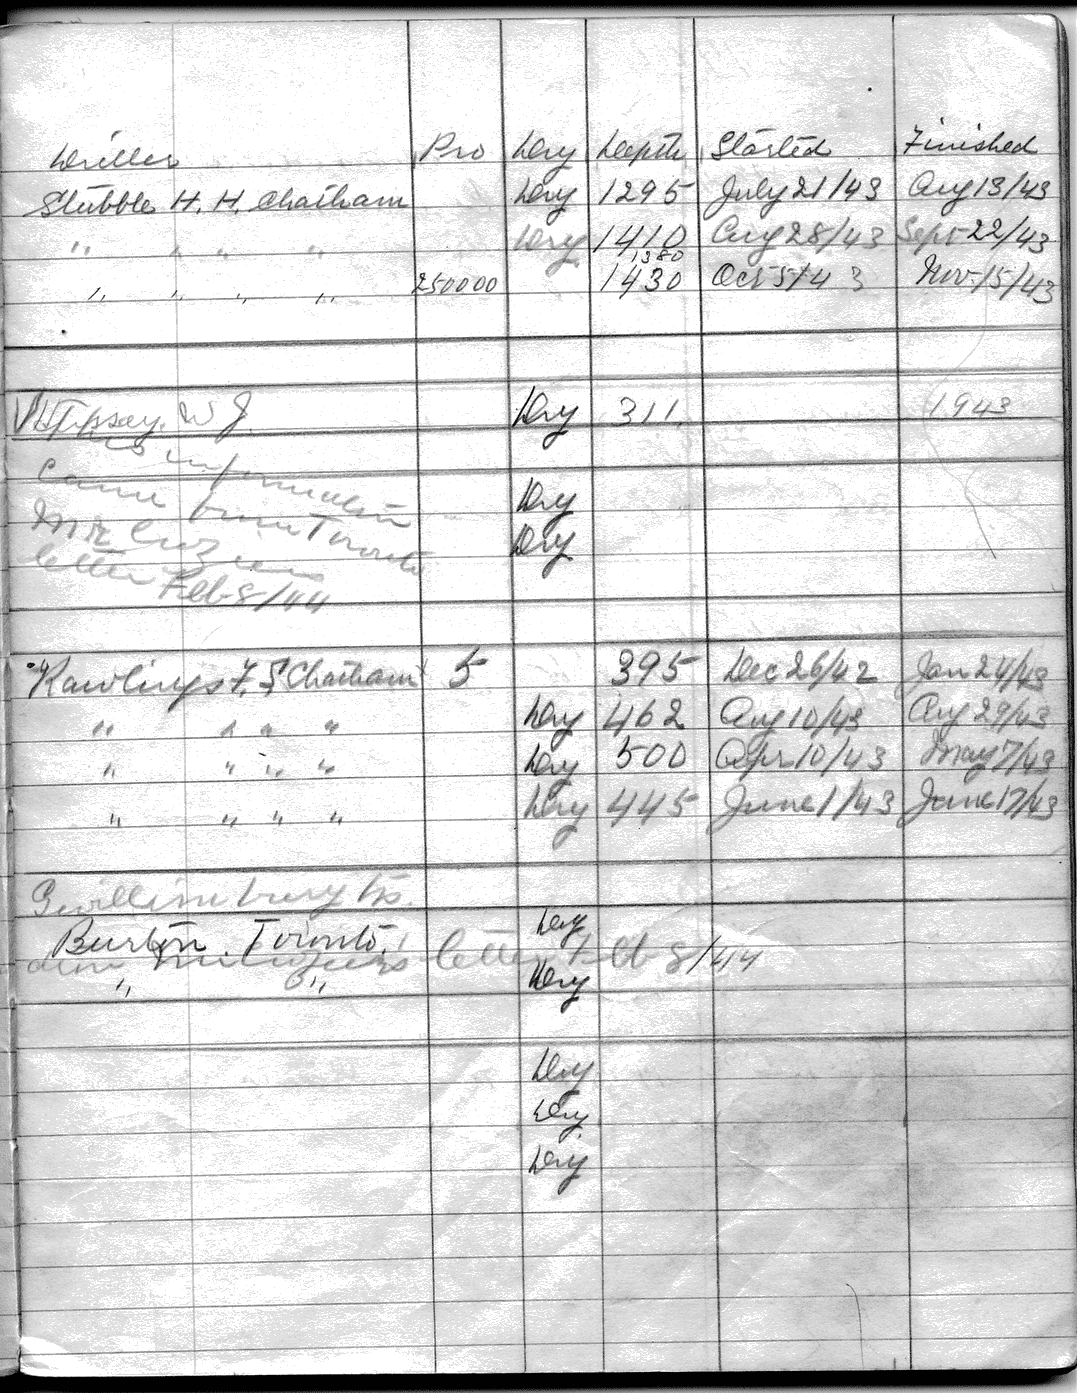 Driller Pro Dry Depth Started Finished
Stubble H. H. Chatham Dry 1295 July 21/43 Aug 13/43
" " " " Dry 1410 Aug 28/43 Sept 22/43
1380
" " " " 250000 1430 Oct 5/43 Nov 15/43
W J. Dry 311. 1943
no information
came from Toronto Dry
Mr Dry
letter Feb 8/44
Rawlings F. S Chatham 5 395 Dec 26/42 Jan 24/43
" " " " Dry 462 Aug 10/43 Aug 29/43
" " " " Dry 500 Apr 10/43 May 7/43
" " " " Dry 445 June 1/43 June 17/43
Gwillimbury
Burton. Toronto. Dry
letter Feb 8/44
" " Dry
Dry
Dry
Dry